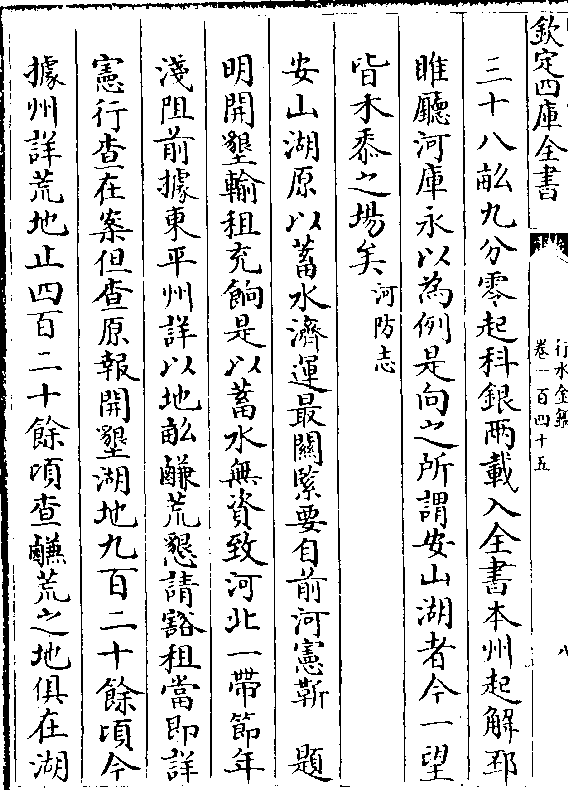 欽定四庫全書
行水金鑑
卷一百四十五
八
三十八畝九分零起科銀兩載入全書本州起解邳
睢廳河庫永以為例是向之所謂安山湖者今一望
皆木黍之場矣河防志
安山湖原以蓄水濟運最關緊要自前河憲靳 題
明開墾輸租充餉是以蓄水無資致河北一帶節年
淺阻前據東平州詳以地畝鹻荒懇請豁租當即詳
憲行查在案但查原報開墾湖地九百二十餘頃今
據州詳荒地止四百二十餘頃查鹻荒之地俱在湖